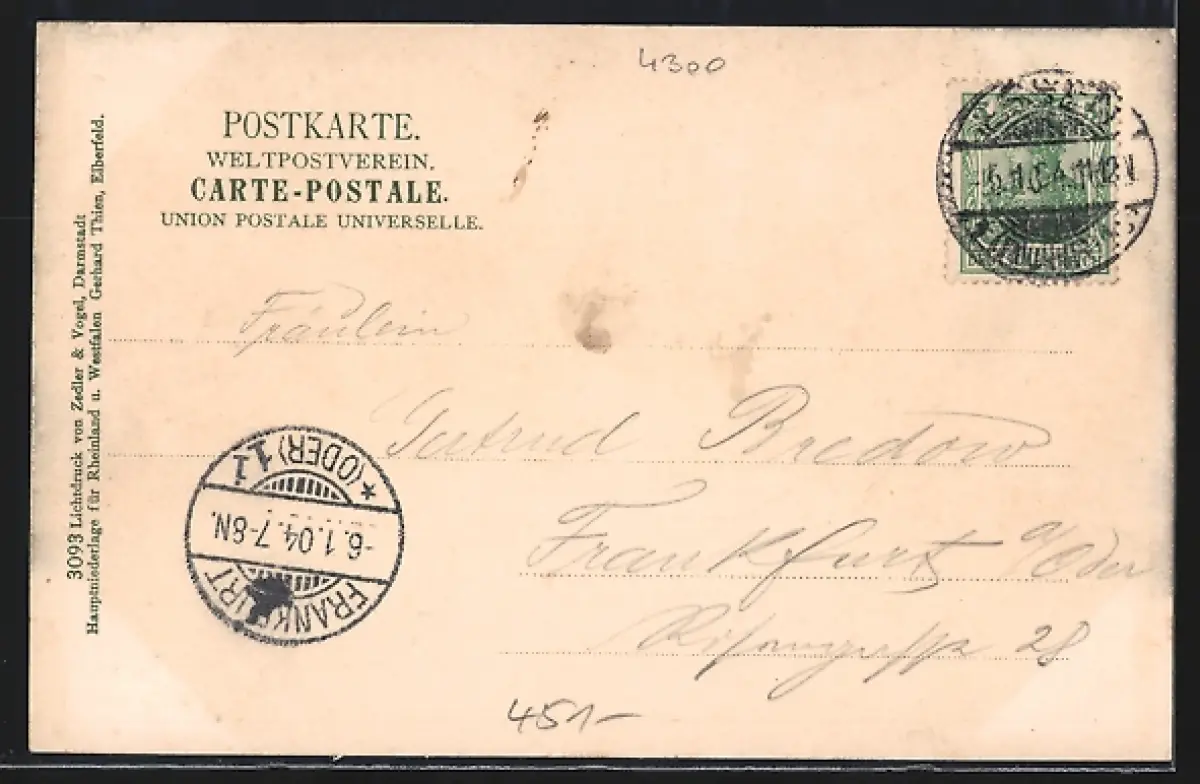 4300
POSTKARTE.
WELTPOSTVEREIN.
CARTE-POSTALE.
UNION POSTALE UNIVERSELLE.
Fräulein
Gertrud Bredow
Frankfurt a/Oder
28
451-
FRANKFURT
-6.1.04.7-8N.
*(ODER)1
3093 Lichtdruck von Zedler & Vogel, Darmstadt
Hauptniederlage für Rheinland u. Westfalen Gerhard Thien, Elberfeld.